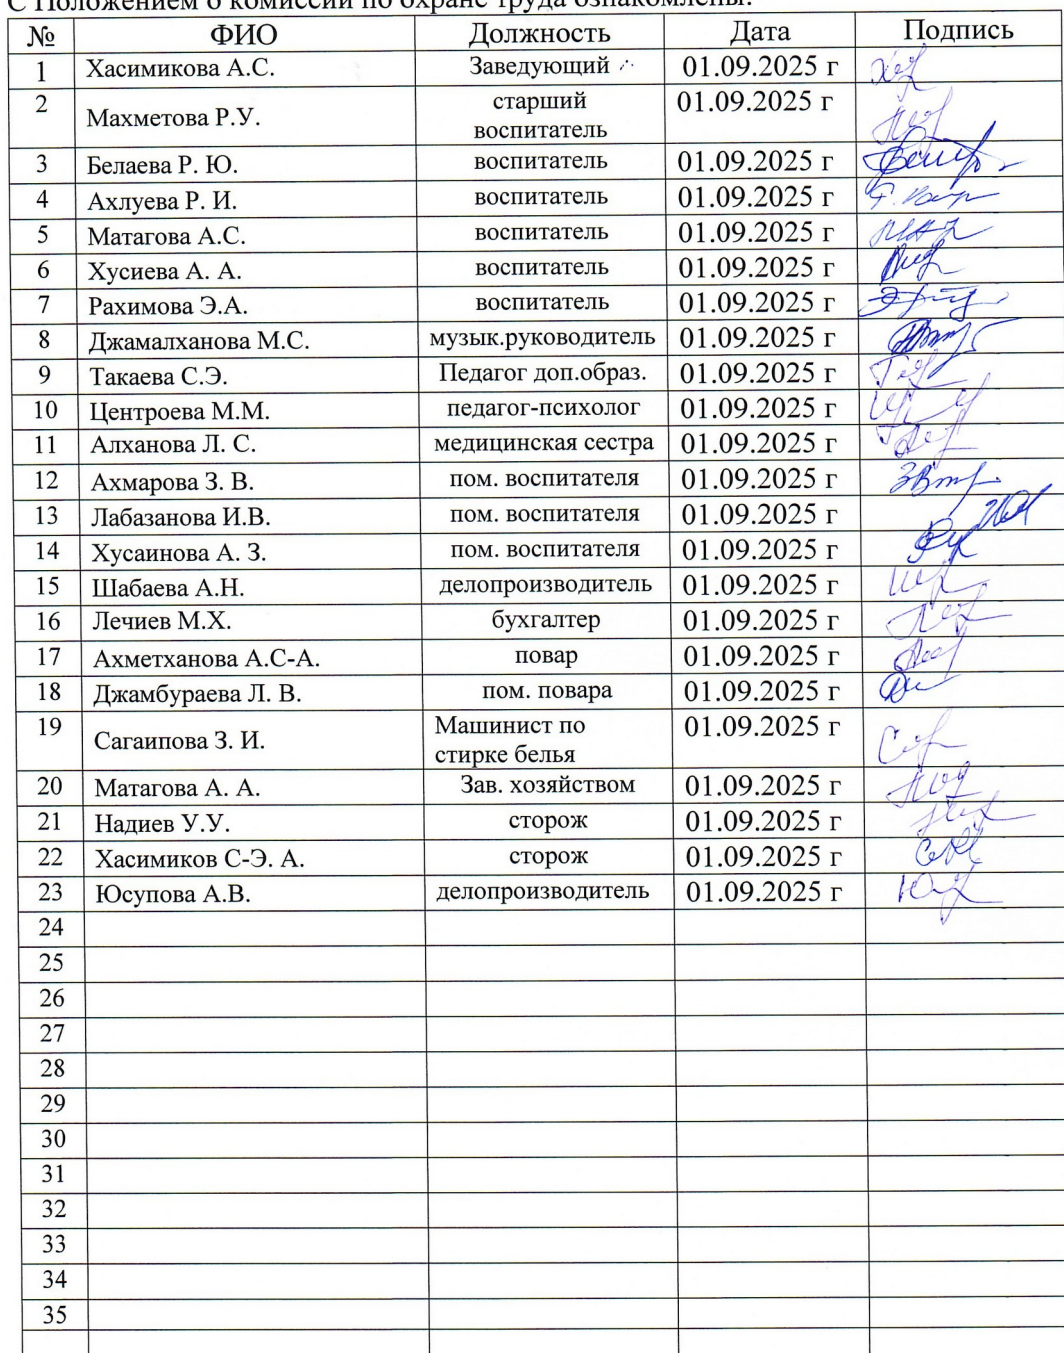 С Положением о комиссии по охране труда ознакомлены:
№ ФИО Должность Дата Подпись
1 Хасимикова А.С. Заведующий 01.09.2025 г
2 Махметова Р.У. старший воспитатель 01.09.2025 г
3 Белаева Р. Ю. воспитатель 01.09.2025 г
4 Ахлуева Р. И. воспитатель 01.09.2025 г
5 Матагова А.С. воспитатель 01.09.2025 г
6 Хусиева А. А. воспитатель 01.09.2025 г
7 Рахимова Э.А. воспитатель 01.09.2025 г
8 Джамалханова М.С. музык.руководитель 01.09.2025 г
9 Такаева С.Э. Педагог доп.образ. 01.09.2025 г
10 Центроева М.М. педагог-психолог 01.09.2025 г
11 Алханова Л. С. медицинская сестра 01.09.2025 г
12 Ахмарова З. В. пом. воспитателя 01.09.2025 г
13 Лабазанова И.В. пом. воспитателя 01.09.2025 г
14 Хусаинова А. З. пом. воспитателя 01.09.2025 г
15 Шабаева А.Н. делопроизводитель 01.09.2025 г
16 Лечиев М.Х. бухгалтер 01.09.2025 г
17 Ахметханова А.С-А. повар 01.09.2025 г
18 Джамбураева Л. В. пом. повара 01.09.2025 г
19 Сагаипова З. И. Машинист по стирке белья 01.09.2025 г
20 Матагова А. А. Зав. хозяйством 01.09.2025 г
21 Надиев У.У. сторож 01.09.2025 г
22 Хасимиков С-Э. А. сторож 01.09.2025 г
23 Юсупова А.В. делопроизводитель 01.09.2025 г
24
25
26
27
28
29
30
31
32
33
34
35